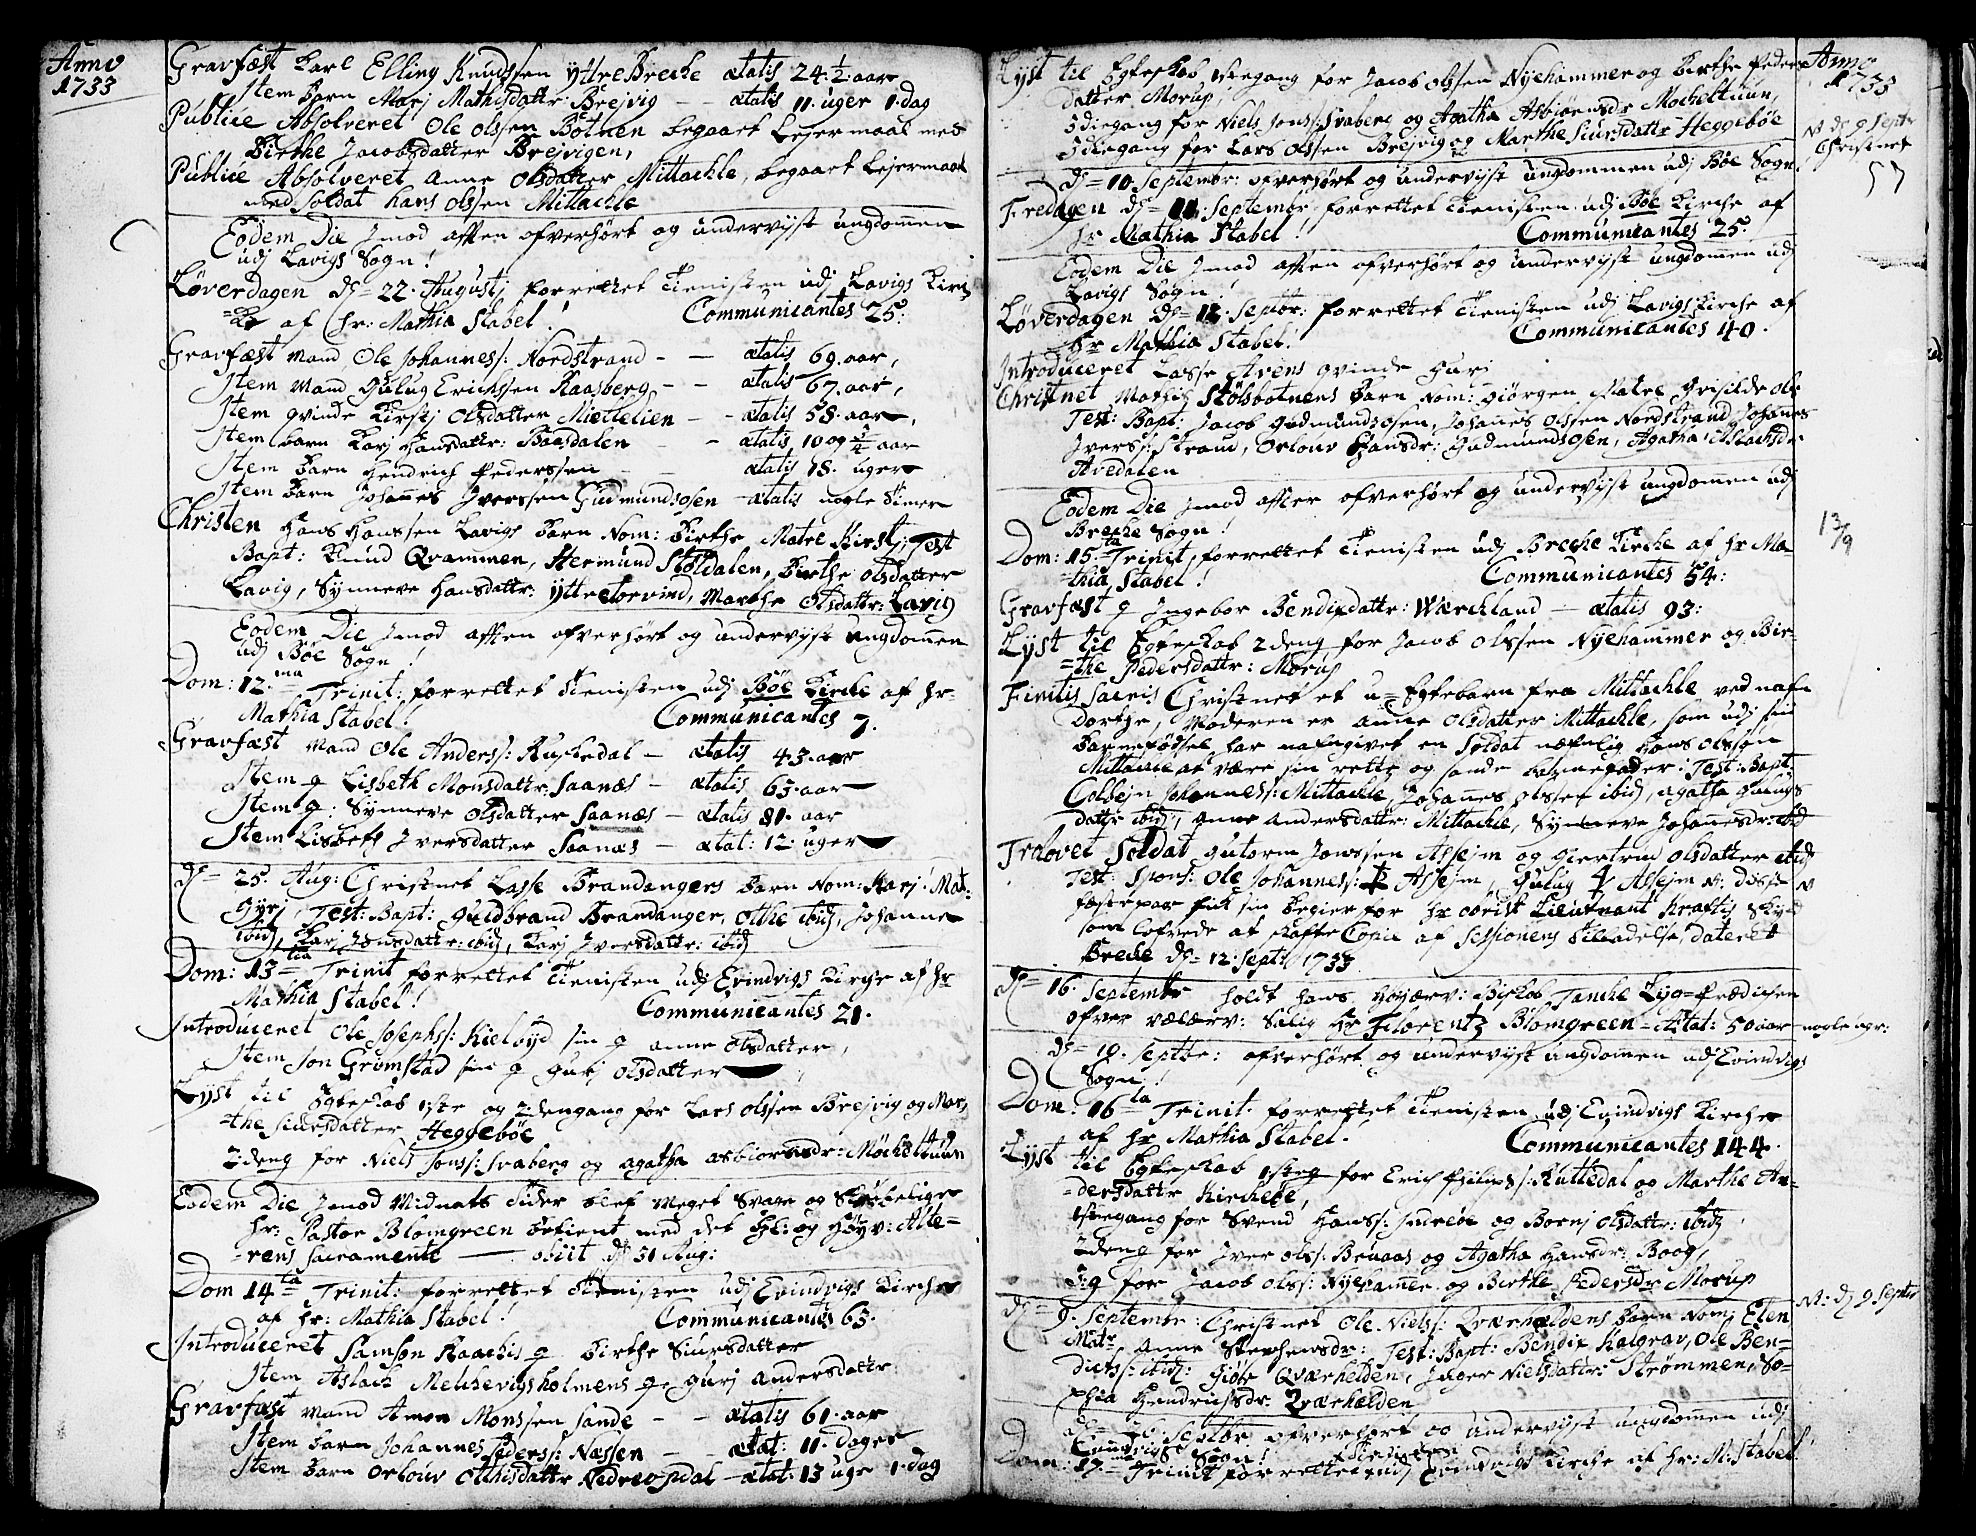 Anno
1733
Gravfæst Karl Elling Knudssen Yttre Breche ætatis 24 1/2 aar
Item Barn Marj Mathisdattr: Brejvig - - ætatis 11. uger 1. dag
Publice Absolveret Ole Olssen Botnen begaaet Lejermaal med
Birthe Jacobsdatter Brejvigen,
Publice Absolveret Anne Olsdatter Mittachle, begaaet Lejermaal
med Soldat Hans Olssen Mittachle
Eodem Die Imod Afften ofverhørt og undervijst ungdommen
udj Lavigs Sogn!
Løverdagen d= 22. Augustj forrettet Tienisten udj Lavigs Kirch
=ke af Hr: Mathia Stabel! Communicantes 25:
Gravfæst Mand Ole Johanness: Nordstrand - - ætatis 69. aar,
Item Mand Gulug Erichssen Raasberg - - ætatis 67. aar,
Item qvinde Kirstj Olsdatter Mættelien - - ætatis 58. aar,
Item barn Karj Hansdattr: Baasdalen - - ætatis 10 og 1/2 aar
Item Barn Hendrich Pederssen - - ætatis 18. uger
Item Barn Johannes Iverssen Gudmundsosen - ætatis nogle Timer
Christen Hans Hanssen Lavigs Barn Nom: Birthe Matre Kirstj, Test
Bapt: Knud Qvammen, Hermund Støldalen, Birthe Olsdatter
Lavig, Synneve Hansdattr: Yttre Torvind, Marthe Olsdattr: Lavig
Eodem Die Imod afften ofverhørt og undervijst ungdommen
udj Bøe Sogn!
Dom: 12.ma Trinit: forrettet Tienisten udj Bøe Kirche af Hr-
Mathia Stabel! Communicantes 7.
Gravfæst Mand Ole Anderss: Rusledal - ætatis 43. aar
Item q Lisbeth Monsdattr: Saanæs - ætatis 63. aar
Item q: Synneve Olsdatter Saanæs - ætatis 81. aar
Item Lisbeth Iversdatter Saanæs - ætat: 12. uger
d= 25. Aug: Christnet Lasse Brandangers Barn Nom: Karj: Mat:
Gyrj, Test: Bapt: Guldbrand Brandanger, Otthe ibid, Johanne
ibid, Karj Jonsdattr: ibid, Karj Iversdattr: ibid
Dom: 13tia Trinit forrettet Tienisten udj Evindvigs Kirche af Hr
Mathia Stabel! Communicantes 21.
Introduceret Ole Josephs: Kielbyd sin q anne Olsdatter,
Item Jon Gromstad sin q Gurj Olsdatter
Lyst til Egteskab 1ste og 2dengang for Lars Olssen Brejvig og Mar-
=the Siursdatter Heggebøe
2deng for Niels Jonss: Svaberg og Agatha Asbiorsdr: Møcheltuun
Eodem Die Imod Midnats Tider blef Meget Svage og Skrøbelige
Hr: Pastor Blomgreen Betient med det Hl: og Høyv: Alte=
=rens Sacramente — obiit d 31 Aug:
Dom 14ta Trinit: forrettet Tienisten udj Evindvigs Kirche
af Hr: Mathia Stabel! Communicantes 63.
Introduceret Samson Raachis q Birthe Siursdatter
Item Aslach Melchevigsholmens q Gurj Andersdatter
Gravfæst Mand Amon Monssen Sande - - ætatis 61. aar
Item Barn Johannes Pederss: Næssen - - ætat: 11. dager
Item Barn Orlouv Otthisdattr Nedreopdal - ætat: 13 uge 1. dag
Lyst til Egteskab 1stegang for Jacob Olssen Nyehammer og Birthe Peders
datter Morup,
3diegang for Niels Jonss: Svaberg og Agatha Asbiorsdr Mocheltuun,
3diegang for Lars Olssen Brejvig og Marthe Siursdattr Heggebøe
d= 10. Septembr: ofverhørt og undervijst ungdommen udj Bøe Sogn.
Fredagen d= 11. Septembr forrettet Tienisten udj Bøe Kirche af
Hr Mathia Stabel! Communicantes 25.
Eodem Die Imod afften ofverhørt og undervijst ungdommen udj
Lavigs Sogn!
Løverdagen d= 12. Septbr: forrettet Tienisten udj Lavigs Kirche af
Hr Mathia Stabel! Communicantes 40.
Introduceret Lasse Arens qvinde Guri
Christnet Mathis Stølsbotnens Barn Nom: Giørgen Matre Grisilde Ols
Test: Bapt: Jacob Gudmundsosen, Johannes Olssen Nordstrand, Johannes
Iverss: Strand, Orlouv Hansdr: Gudmundsosen, Agatha Aslachsdr
Avedalen
Eodem Die Imod Affter ofverhørt og undervijst ungdommen udj
Breche Sogn!
Dom: 15ta Trinit, forrettet Tienisten udj Breche Kirche af Hr Ma-
=thia Stabel! Communicantes 54:
Gravfæst q Ingebor Bendixdattr: Værchland — ætatis 93:
Lyst til Egteskab 2deng for Jacob Olssen Nyehammer og Bir-
=the Pedersdattr: Morup
Finitis Sacris Christnet et u=Egtebarn fra Mittachle ved nafn
Dorthe, Moderen er Anne Olsdatter Mittachle, som udj sin
Barnefødsel har nafngivet en Soldat næfnlig Hans Olssøn
Mittachle at være sin rette og sande barnefader: Test: Bapt
Colbejn Johanness: Mittachle, Johannes Olssen ibid, Agatha Gulugs
dattr ibid, Anne Andersdattr: Mittachle, Synneve Johannesdr: ibid
Trolovet Soldat Gutorm Jonssen Assejm og Giertrud Olsdatter ibid
Test: Spons: Ole Johanness: Assejm, Gulug Assejm Nt: disse
fæstepar fik sin Begier for Hr Ober Lieutnant Kraftis Skyld
som lofvede at skaffe Copie af Sessionens Tilladelse, dateret
Breche d= 12. Septr 1733
d= 16. Septembr holdt Hans Høyærv: Biskob Tanche Liig=Prædichen
ofver vælærv: Salig Hr Florentz Blomgreen - Ætat: 50 aar
d= 19. Septbr: ofverhørt og undervijst ungdommen udj Evindvigs
Sogn!
Dom: 16ta Trinit. forrettet Tienisten udj Evindvigs Kirche
af Hr Mathia Stabel. Communicantes 144.
Lyst til Egteskab 1steg for Erich Philips: Ruttedal og Marthe An-
=dersdattr Kirchebøe,
1stegang for Svend Hanss: Indreøe og Bornj Olsdattr: ibid
2deng for Iver Olss: Bruaas og Agatha Hansdr: Boog,
3:g for Jacob Olss: Nyehamer og Birthe Pedersdr Morup
d= 9. Septembr: Christnet Ole Nielss: Qværheldens Barn Nom: Elen
Matr Anne Stephensdr: Test: Bapt: Bendix Halgrav, Ole Ben-
dicts: ibid: Giør Qværhelden, Inger Nielsdattr: Strømmen, So-
phia Hendrichsdr: Qværhelden
d= 26 Septbr ofverhørt og undervijst ungdommen udj
Evindvigs Sogn!
Dom: 17ma Trinit forrettet Tienisten udj Evindvigs Kirche af Hr: M: Stabel!
Anno
1733
Nt d 9 Septr
Christnet
57
13/9
nogle ugr:
Nt: d 9 Septr